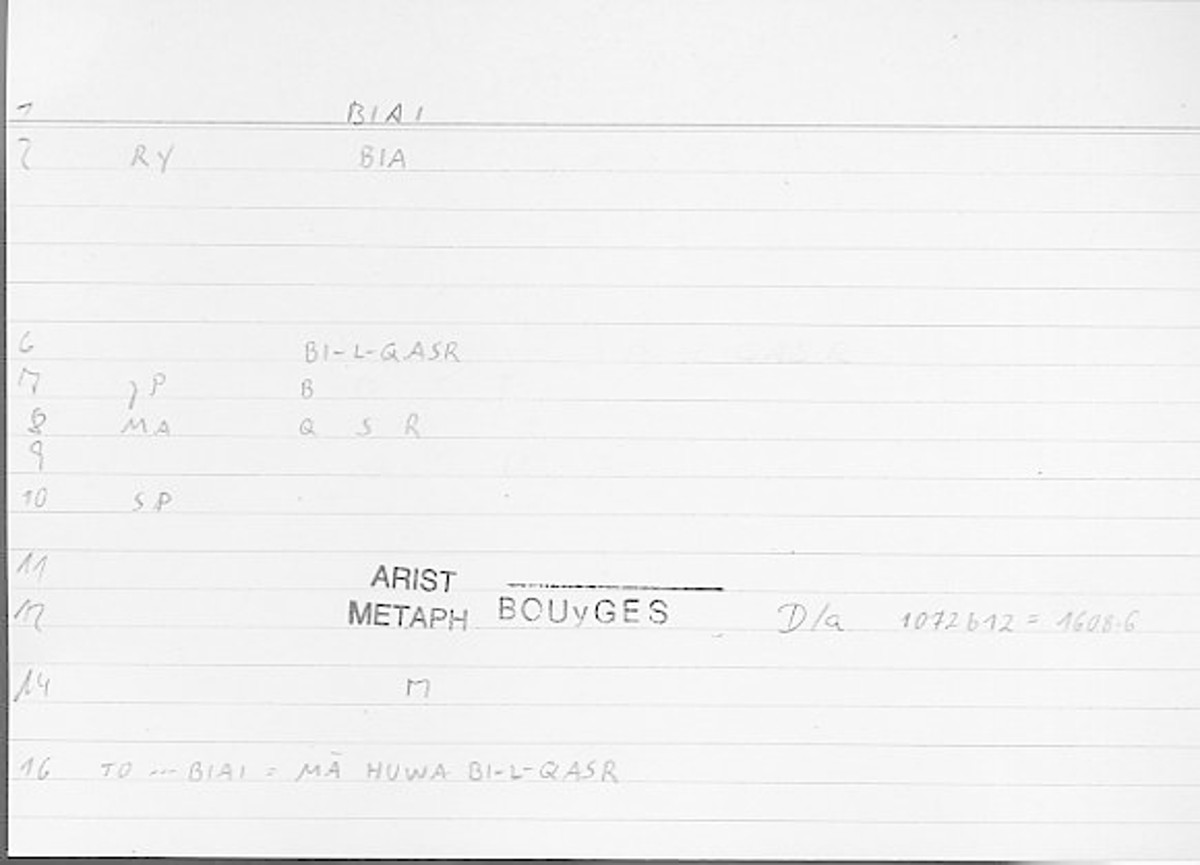 1 BIAI
2 RY BIA
6 BI-L-QASR
7 γP B
8 MA Q S R
9
10 SP
11 ARIST
12 METAPH BOUyGES D/a 1072b12 = 1608.6
14 M
16 TO --- BIAI = MĀ HUWA BI-L-QASR